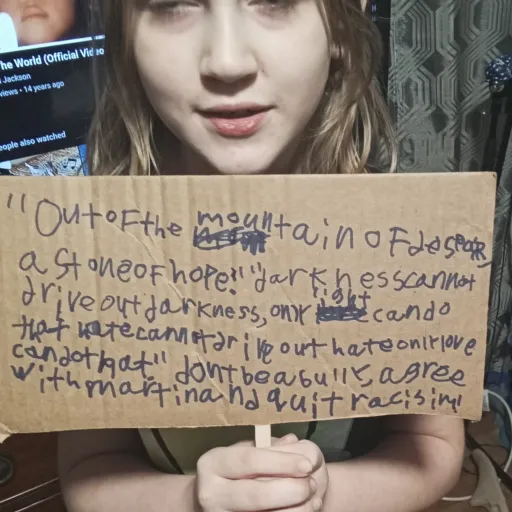 The World (Official Video
Jackson
views • 14 years ago
eople also watched
"Out of the mountain of despear,
a stone of hope!" "darkness cannot
drive out darkness, only light can do
that hate cannot drive out hate only love
can do that" dont be a bully, agree
with martin and quit racisim!